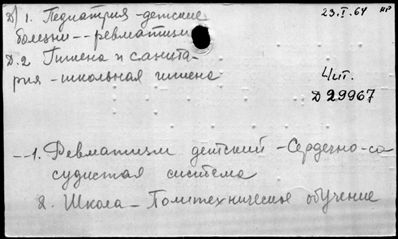 Д) 1. Педиатрия - детские
23.I.64
нр
болезни -- ревматизм
Д.2 Гигиена и санита-
рия - школьная гигиена
Чит.
Д 29967
-- 1. Ревматизм детский - Сердечно-со
судистая система
2. Школа - Политехническое обучение